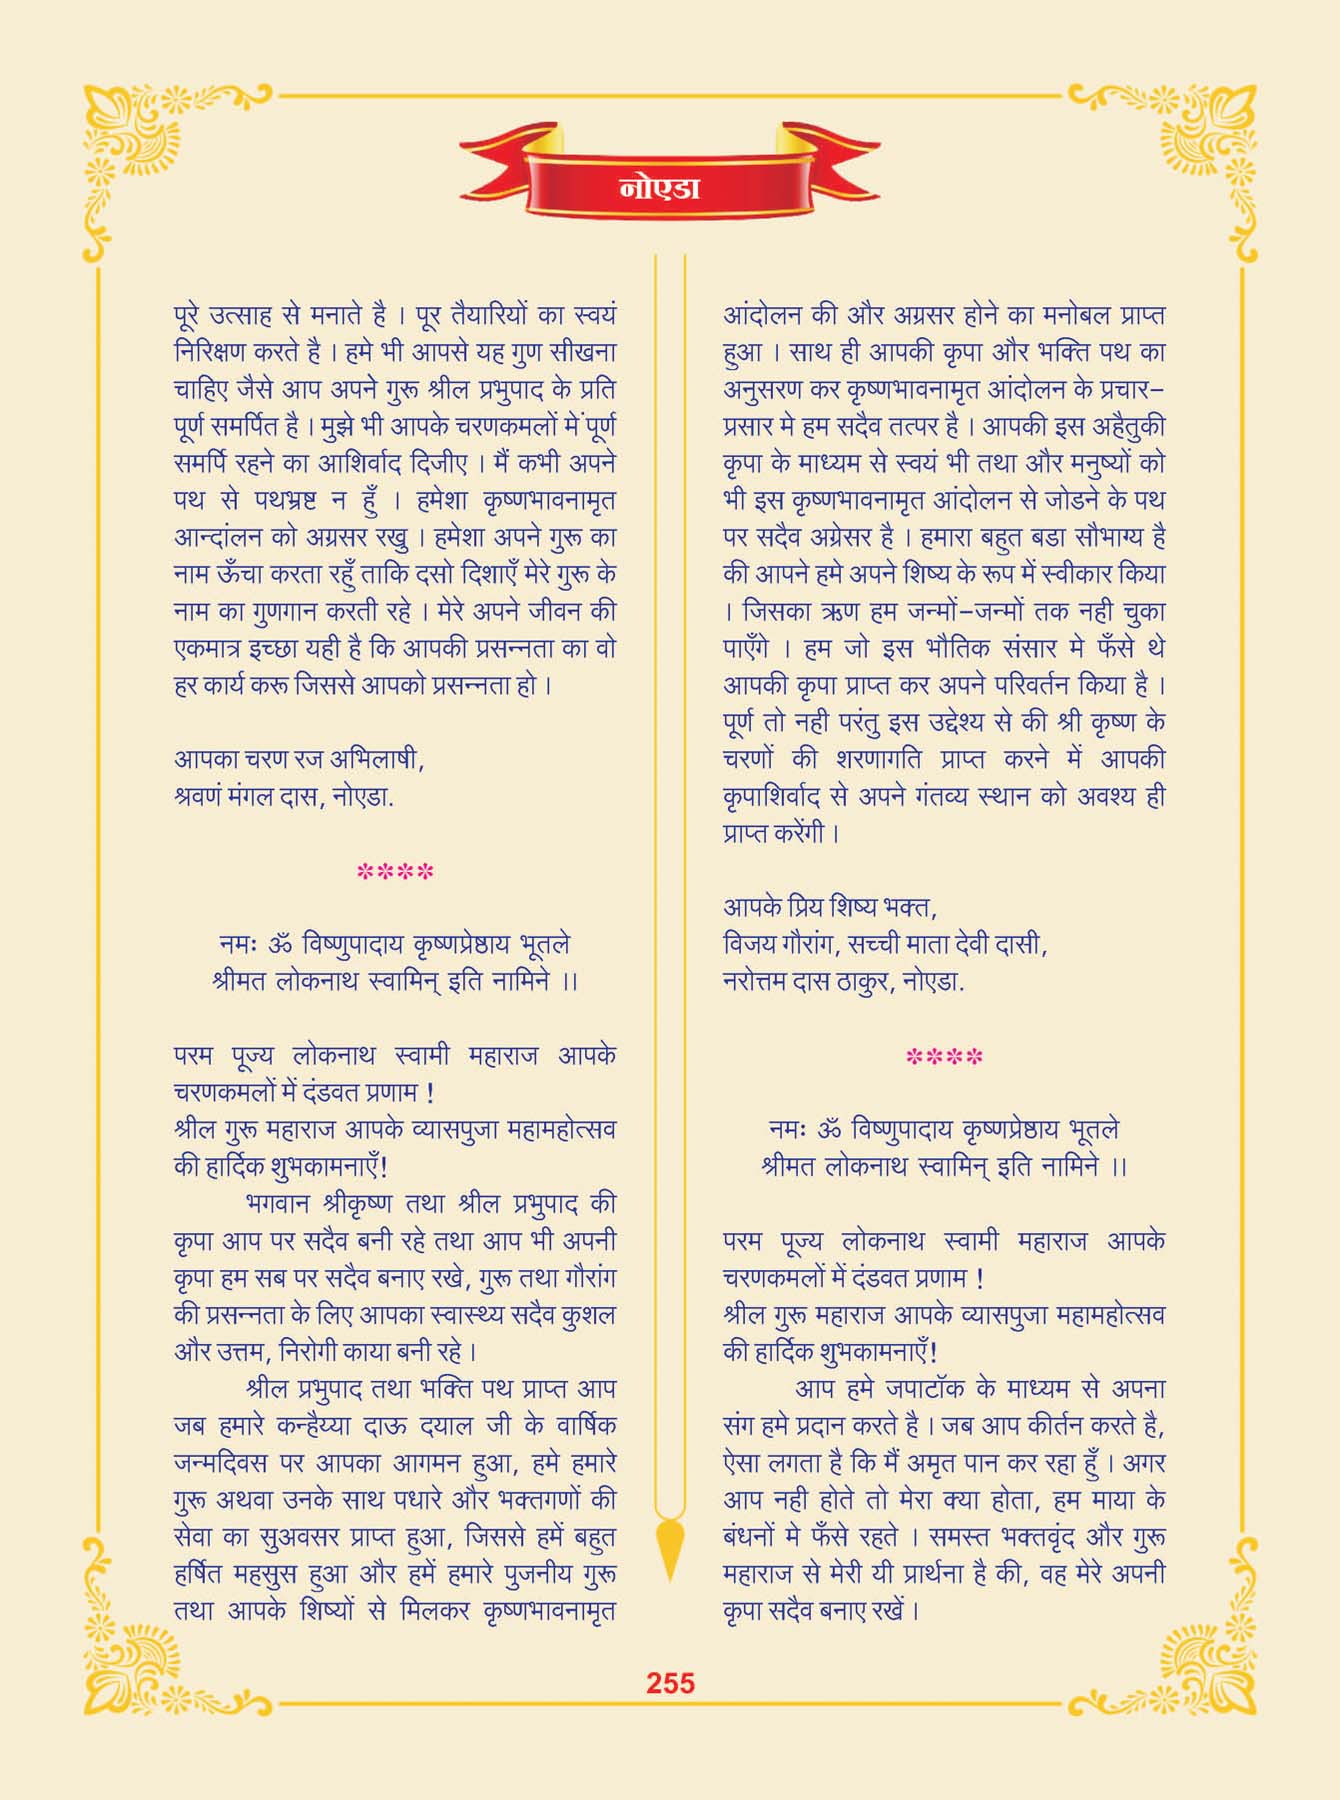 नोएडा
पूरे उत्साह से मनाते है । पूर तैयारियों का स्वयं
निरिक्षण करते है । हमे भी आपसे यह गुण सीखना
चाहिए जैसे आप अपने गुरू श्रील प्रभुपाद के प्रति
पूर्ण समर्पित है । मुझे भी आपके चरणकमलों में पूर्ण
समर्पि रहने का आशिर्वाद दिजीए । मैं कभी अपने
पथ से पथभ्रष्ट न हुँ । हमेशा कृष्णभावनामृत
आन्दांलन को अग्रसर रखु । हमेशा अपने गुरू का
नाम ऊँचा करता रहुँ ताकि दसो दिशाएँ मेरे गुरू के
नाम का गुणगान करती रहे । मेरे अपने जीवन की
एकमात्र इच्छा यही है कि आपकी प्रसन्नता का वो
हर कार्य करू जिससे आपको प्रसन्नता हो ।
आपका चरण रज अभिलाषी,
श्रवणं मंगल दास, नोएडा.
****
नमः ॐ विष्णुपादाय कृष्णप्रेष्ठाय भूतले
श्रीमत लोकनाथ स्वामिन् इति नामिने ।।
परम पूज्य लोकनाथ स्वामी महाराज आपके
चरणकमलों में दंडवत प्रणाम !
श्रील गुरू महाराज आपके व्यासपुजा महामहोत्सव
की हार्दिक शुभकामनाएँ!
भगवान श्रीकृष्ण तथा श्रील प्रभुपाद की
कृपा आप पर सदैव बनी रहे तथा आप भी अपनी
कृपा हम सब पर सदैव बनाए रखे, गुरू तथा गौरांग
की प्रसन्नता के लिए आपका स्वास्थ्य सदैव कुशल
और उत्तम, निरोगी काया बनी रहे ।
श्रील प्रभुपाद तथा भक्ति पथ प्राप्त आप
जब हमारे कन्हैय्या दाऊ दयाल जी के वार्षिक
जन्मदिवस पर आपका आगमन हुआ, हमे हमारे
गुरू अथवा उनके साथ पधारे और भक्तगणों की
सेवा का सुअवसर प्राप्त हुआ, जिससे हमें बहुत
हर्षित महसुस हुआ और हमें हमारे पुजनीय गुरू
तथा आपके शिष्यों से मिलकर कृष्णभावनामृत
आंदोलन की और अग्रसर होने का मनोबल प्राप्त
हुआ । साथ ही आपकी कृपा और भक्ति पथ का
अनुसरण कर कृष्णभावनामृत आंदोलन के प्रचार-
प्रसार मे हम सदैव तत्पर है । आपकी इस अहैतुकी
कृपा के माध्यम से स्वयं भी तथा और मनुष्यों को
भी इस कृष्णभावनामृत आंदोलन से जोडने के पथ
पर सदैव अग्रेसर है । हमारा बहुत बडा सौभाग्य है
की आपने हमे अपने शिष्य के रूप में स्वीकार किया
। जिसका ऋण हम जन्मों-जन्मों तक नही चुका
पाएँगे । हम जो इस भौतिक संसार मे फँसे थे
आपकी कृपा प्राप्त कर अपने परिवर्तन किया है ।
पूर्ण तो नही परंतु इस उद्देश्य से की श्री कृष्ण के
चरणों की शरणागति प्राप्त करने में आपकी
कृपाशिर्वाद से अपने गंतव्य स्थान को अवश्य ही
प्राप्त करेंगी ।
आपके प्रिय शिष्य भक्त,
विजय गौरांग, सच्ची माता देवी दासी,
नरोत्तम दास ठाकुर, नोएडा.
****
नमः ॐ विष्णुपादाय कृष्णप्रेष्ठाय भूतले
श्रीमत लोकनाथ स्वामिन् इति नामिने ।।
परम पूज्य लोकनाथ स्वामी महाराज आपके
चरणकमलों में दंडवत प्रणाम !
श्रील गुरू महाराज आपके व्यासपुजा महामहोत्सव
की हार्दिक शुभकामनाएँ!
आप हमे जपाटॉक के माध्यम से अपना
संग हमे प्रदान करते है । जब आप कीर्तन करते है,
ऐसा लगता है कि मैं अमृत पान कर रहा हुँ । अगर
आप नही होते तो मेरा क्या होता, हम माया के
बंधनों मे फँसे रहते । समस्त भक्तवृंद और गुरू
महाराज से मेरी यी प्रार्थना है की, वह मेरे अपनी
कृपा सदैव बनाए रखें ।
255